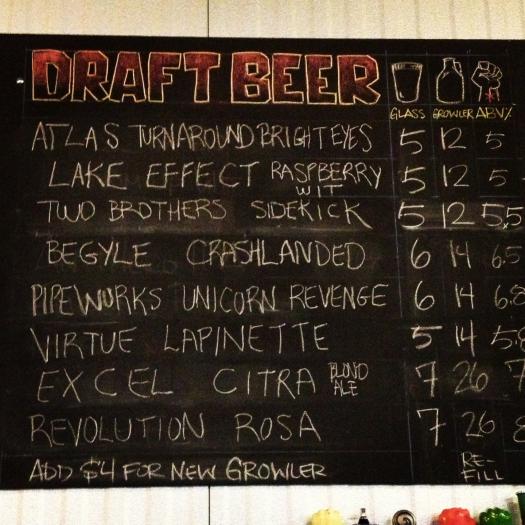 DRAFT BEER
GLASS GROWLER ABV%
ATLAS TURNAROUND BRIGHT EYES 5 12 5
LAKE EFFECT RASPBERRY WIT 5 12 5
TWO BROTHERS SIDEKICK 5 12 5.5
BEGYLE CRASHLANDED 6 14 6.5
PIPEWURKS UNICORN REVENGE 6 14 6.8
VIRTUE LAPINETTE 5 14 5.8
EXCEL CITRA BLOND ALE 7 26 7
REVOLUTION ROSA 7 26
ADD $4 FOR NEW GROWLER RE-FILL